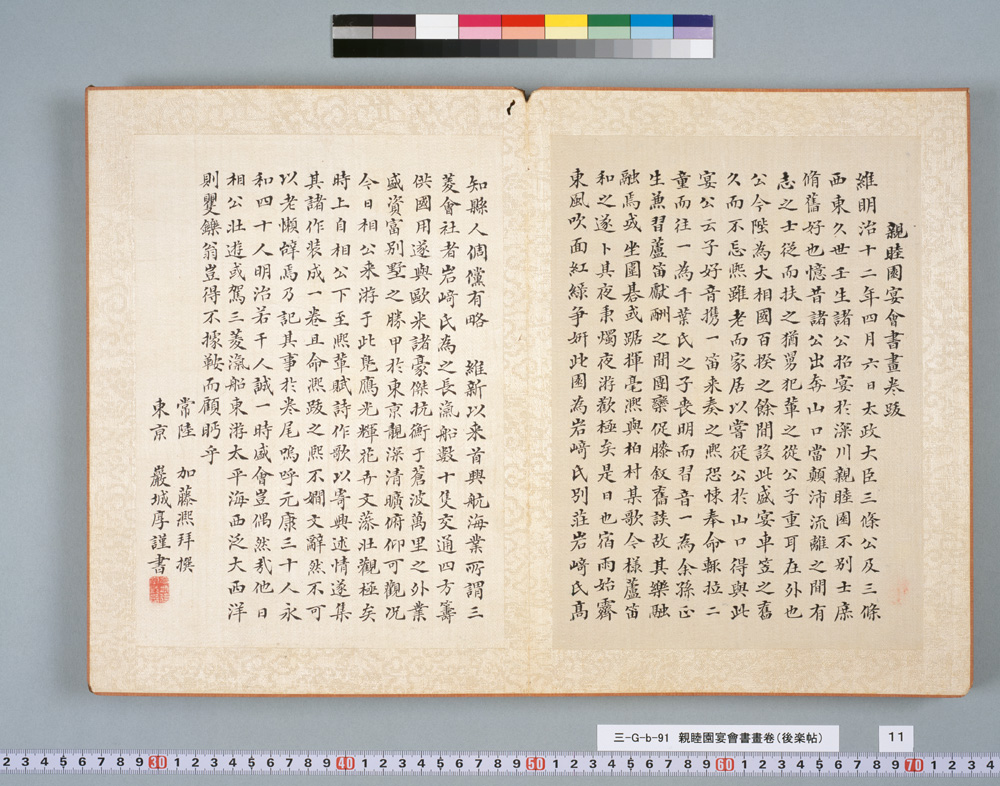 親睦園宴會書畫卷跋
維明治十二年四月六日太政大臣三條公及三條
西東久世壬生諸公招宴於深川親睦園不別士庶
脩舊好也憶昔諸公出奔山口當顛沛流離之間有
志之士從而扶之猶舅犯輩之從公子重耳在外也
公今陞為大相國百揆之餘間設此盛宴車笠之舊
久而不忘熙雖老而家居以嘗從公於山口得與此
宴公云子好音携一笛来奏之熙恐悚奉命輙拉二
童而往一為千葉氏之子喪明而習音一為余孫正
生兼習蘆笛獻酬之間團欒促膝叙舊談故其樂融
融焉或坐圍碁或踞揮毫熙與柏村某歌今様蘆笛
和之遂卜其夜秉燭夜游歡極矣是日也宿雨始霽
東風吹面紅綠争妍此園為岩﨑氏別莊岩﨑氏髙
知縣人倜儻有略 維新以来首興航海業所謂三
菱會社者岩﨑氏為之長瀛船數十隻交通四方籌
供國用遂與歐米諸豪傑抗衡于蒼波萬里之外業
盛資富別墅之勝甲於東京靚深清曠俯仰可觀况
今日相公来游于此鳬鷹光輝花卉文藻壮觀極矣
時上自相公下至熙輩賦詩作歌以寄興述情遂集
其諸作装成一卷且命熙跋之熙不嫺文辭然不可
以老懶辞焉乃記其事於卷尾嗚呼元康三十人永
和四十人明治若干人誠一時盛會豈偶然哉他日
相公壮遊或駕三菱瀛船東游太平海西泛大西洋
則矍鑠翁豈得不據鞍而顧眄乎
常陸 加藤熙拜撰
東京 巖城厚謹書
三-G-b-91 親睦園宴會書畫卷(後楽帖)
11